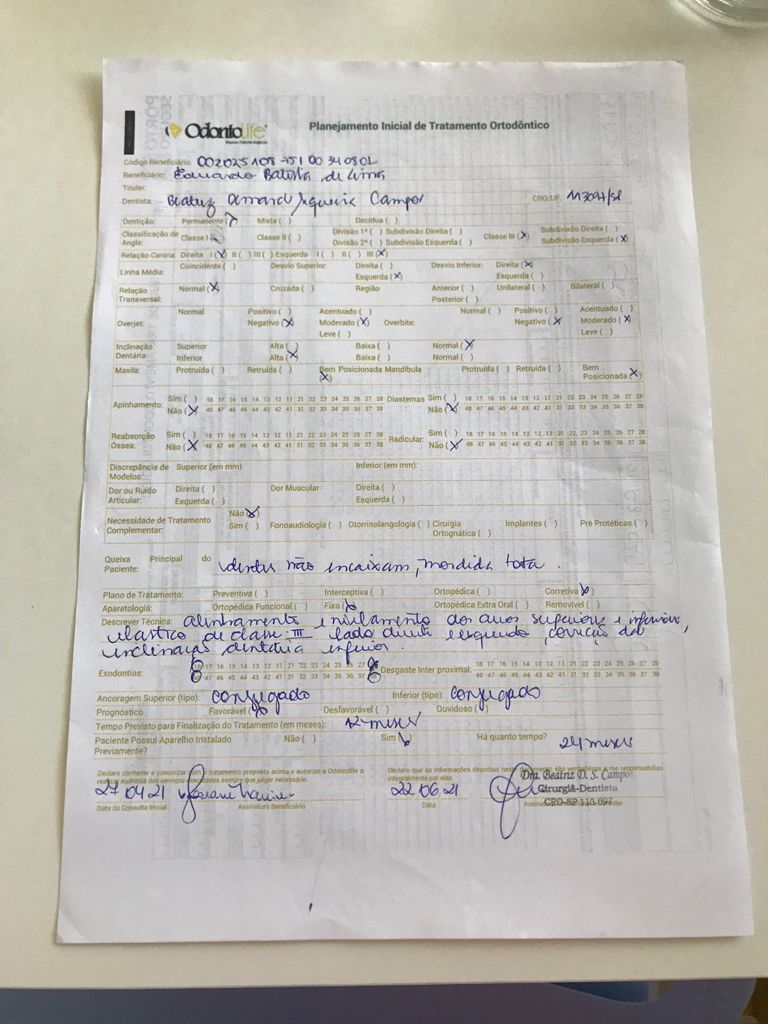 OdontoLife
Planejamento Inicial de Tratamento Ortodôntico
Código Beneficiário:
Beneficiário: Eduardo Batista de Lima
Titular:
Dentista: Beatriz Siqueira Campos CRO/UF: 113097/SP
Dentição: Permanente (X) Mista ( ) Decídua ( )
Classificação de Angle: Classe I Classe II ( ) Divisão 1ª ( ) Subdivisão Direita ( ) Classe III (X) Subdivisão Direita ( )
Divisão 2ª ( ) Subdivisão Esquerda ( ) Subdivisão Esquerda (X)
Relação Canina: Direita I (X) II ( ) III ( ) Esquerda I ( ) II ( ) III (X)
Linha Média: Coincidente ( ) Desvio Superior: Direita ( ) Desvio Inferior: Direita (X)
Esquerda (X) Esquerda ( )
Relação Transversal: Normal (X) Cruzada ( ) Região Anterior ( ) Unilateral ( ) Bilateral ( )
Posterior ( )
Normal Positivo ( ) Acentuado ( ) Normal ( ) Positivo ( ) Acentuado ( )
Overjet: Negativo (X) Moderado (X) Overbite: Negativo (X) Moderado (X)
Leve ( ) Leve ( )
Inclinação Dentária: Superior Alta ( ) Baixa ( ) Normal (X)
Inferior Alta (X) Baixa ( ) Normal ( )
Maxila: Protruída ( ) Retruída ( ) Bem Posicionada (X) Mandíbula Protruída ( ) Retruída ( ) Bem Posicionada (X)
Apinhamento: Sim ( ) 18 17 16 15 14 13 12 11 21 22 23 24 25 26 27 28 Diastemas Sim ( ) 18 17 16 15 14 13 12 11 21 22 23 24 25 26 27 28
Não (X) 48 47 46 45 44 43 42 41 31 32 33 34 35 36 37 38 Não (X) 48 47 46 45 44 43 42 41 31 32 33 34 35 36 37 38
Reabsorção Óssea: Sim ( ) 18 17 16 15 14 13 12 11 21 22 23 24 25 26 27 28 Radicular: Sim ( ) 18 17 16 15 14 13 12 11 21 22 23 24 25 26 27 28
Não (X) 48 47 46 45 44 43 42 41 31 32 33 34 35 36 37 38 Não (X) 48 47 46 45 44 43 42 41 31 32 33 34 35 36 37 38
Discrepância de Modelos: Superior (em mm) Inferior (em mm):
Dor ou Ruído Articular: Direita ( ) Dor Muscular Direita ( )
Esquerda ( ) Esquerda ( )
Não (X)
Necessidade de Tratamento Complementar: Sim ( ) Fonoaudiologia ( ) Otorrinolangologia ( ) Cirurgia Ortognática ( ) Implantes ( ) Pré Protéticas ( )
Queixa Principal do Paciente: dentes não encaixam, mordida torta.
Plano de Tratamento: Preventiva ( ) Interceptiva ( ) Ortopédica ( ) Corretiva (X)
Aparatologia: Ortopédica Funcional ( ) Fixa (X) Ortopédica Extra Oral ( ) Removível ( )
Descrever Técnica: alinhamento e nivelamento dos arcos superiores e inferiores,
elastico de classe III lado direito e esquerdo, correção das
inclinação dentária inferior.
Exodontias: 18 17 16 15 14 13 12 11 21 22 23 24 25 26 27 28 Desgaste Inter proximal: 18 17 16 15 14 13 12 11 21 22 23 24 25 26 27 28
48 47 46 45 44 43 42 41 31 32 33 34 35 36 37 38 48 47 46 45 44 43 42 41 31 32 33 34 35 36 37 38
Ancoragem Superior (tipo): conjugado Inferior (tipo): conjugado
Prognóstico Favorável (X) Desfavorável ( ) Duvidoso ( )
Tempo Previsto para Finalização do Tratamento (em meses): 12 meses
Paciente Possui Aparelho Instalado Previamente? Não ( ) Sim (X) Há quanto tempo? 24 meses
Declaro conhecer e concordar com o tratamento proposto acima e autorizo a Odontolife a realizar auditoria dos serviços executados sempre que julgar necessário.
Declaro que as informações descritas neste são verdadeiras e me responsabilizo integralmente por elas.
27 04 21
22 06 21
Dra. Beatriz D. S. Campos
Cirurgiã-Dentista
CRO-SP 113.097
Data da Consulta Inicial Assinatura Beneficiário Data